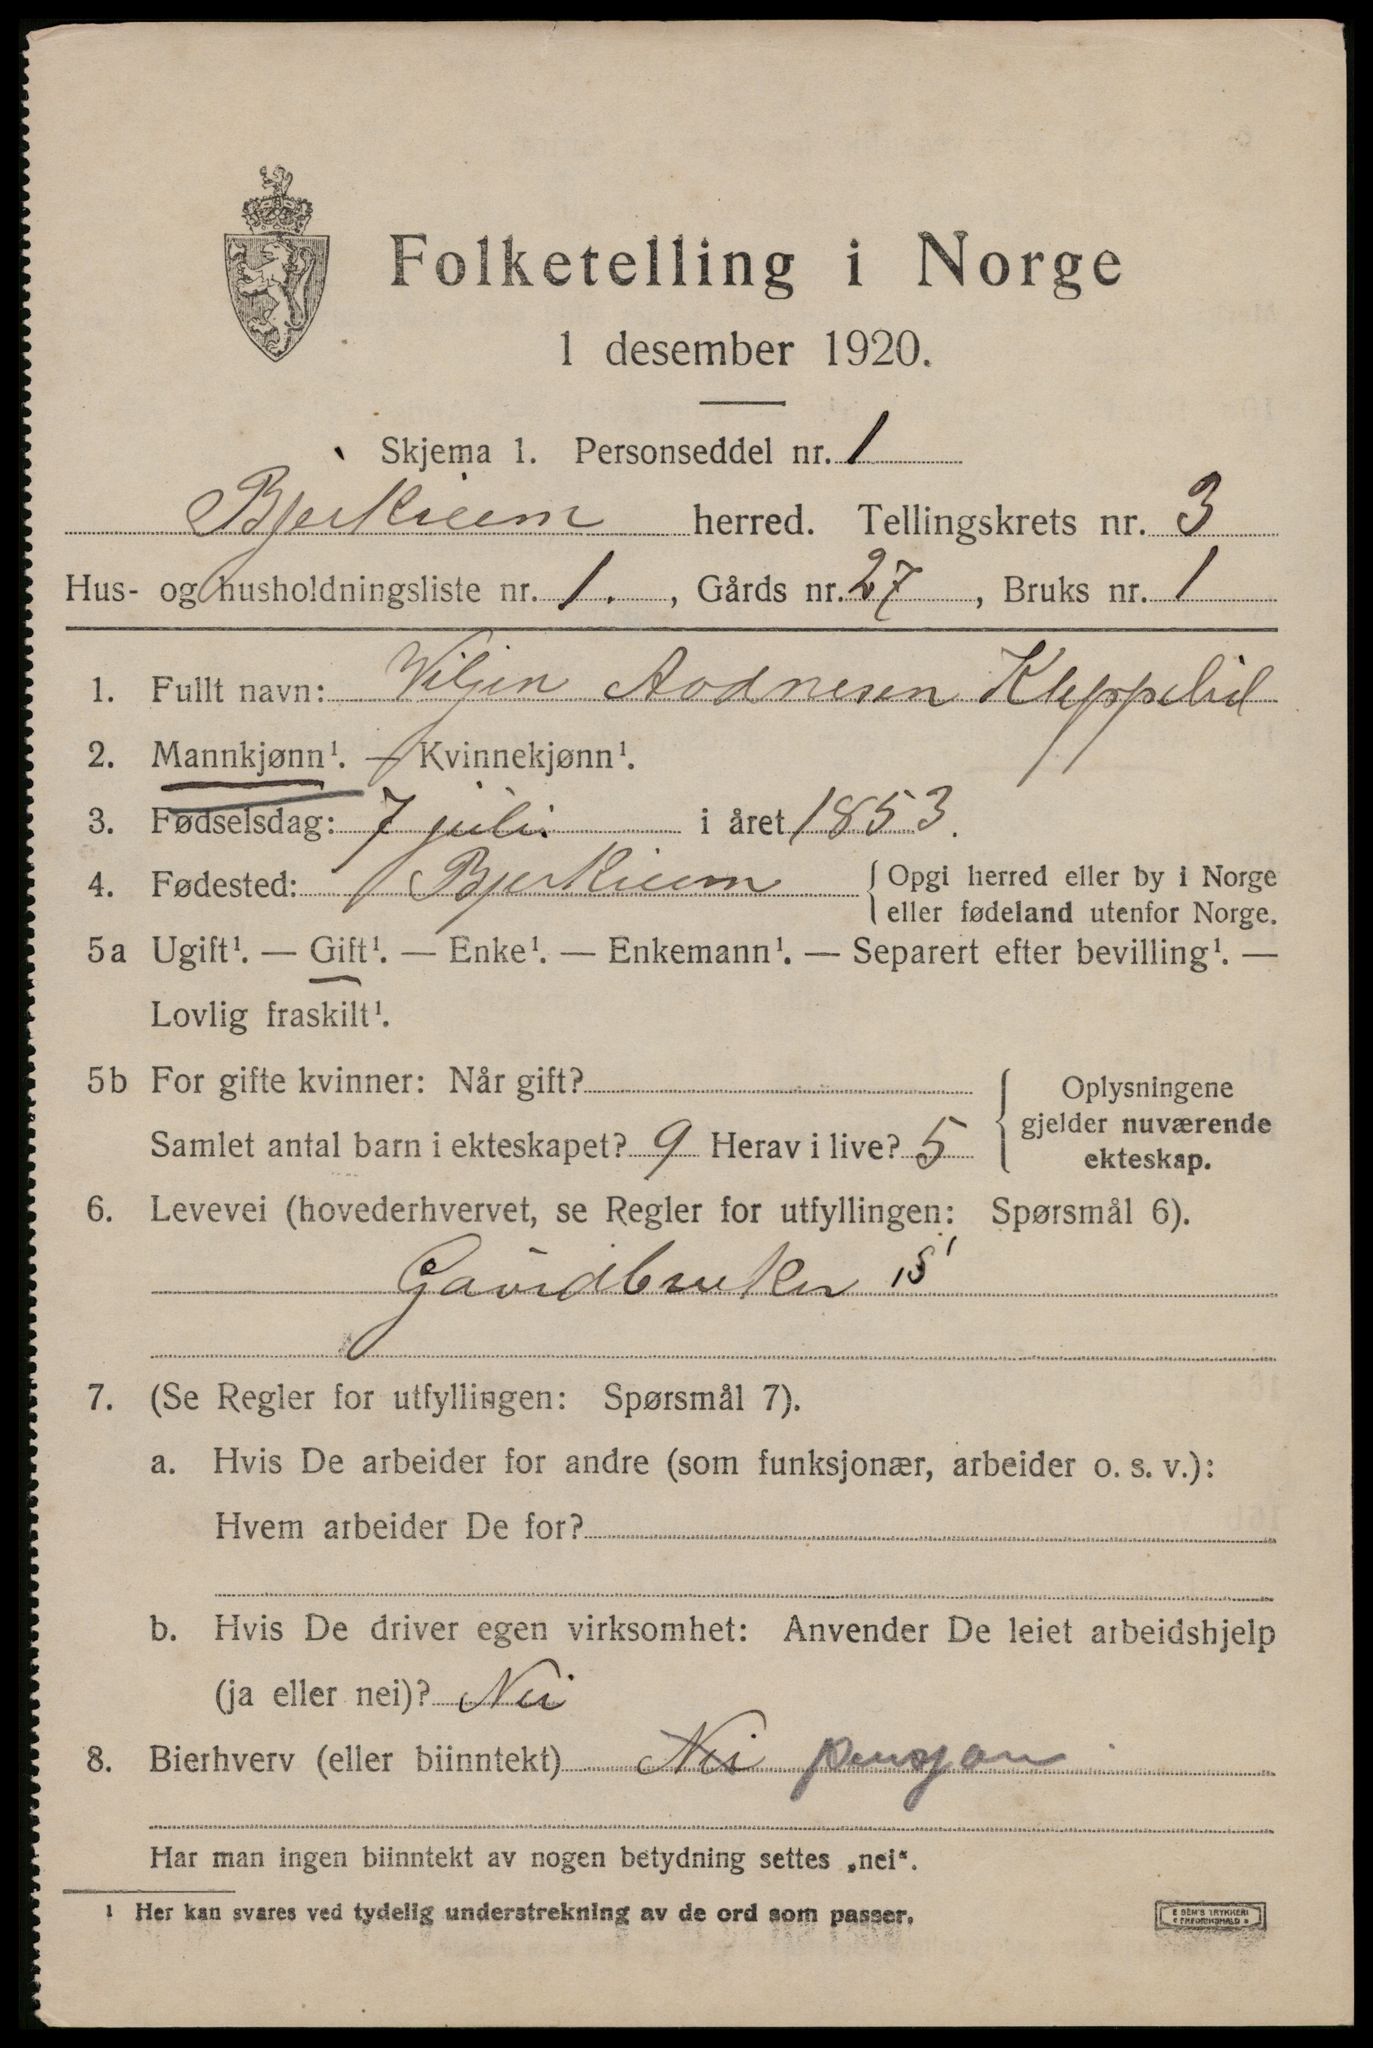 Folketelling i Norge
1 desember 1920.
Skjema 1. Personseddel nr. 1
Bjerkreim herred. Tellingskrets nr. 3
Hus- og husholdningsliste nr. 1. , Gårds nr. 27 , Bruks nr. 1
1. Fullt navn: Viljen Aodnesen Kleppelid
2. Mannkjønn¹. — Kvinnekjønn¹.
3. Fødselsdag: 7 juli. i året 1853.
4. Fødested: Bjerkreim { Opgi herred eller by i Norge
eller fødeland utenfor Norge.
5a Ugift¹. — Gift¹. — Enke¹. — Enkemann¹. — Separert efter bevilling¹. —
Lovlig fraskilt¹.
5b For gifte kvinner: Når gift?
Samlet antal barn i ekteskapet? 9 Herav i live? 5
{ Oplysningene
gjelder nuværende
ekteskap.
6. Levevei (hovederhvervet, se Regler for utfyllingen: Spørsmål 6).
Gaardbruker
7. (Se Regler for utfyllingen: Spørsmål 7).
a. Hvis De arbeider for andre (som funksjonær, arbeider o. s. v.):
Hvem arbeider De for?
b. Hvis De driver egen virksomhet: Anvender De leiet arbeidshjelp
(ja eller nei)? Nei
8. Bierhverv (eller biinntekt) Nei pensjon
Har man ingen biinntekt av nogen betydning settes „nei“.
1 Her kan svares ved tydelig understrekning av de ord som passer.